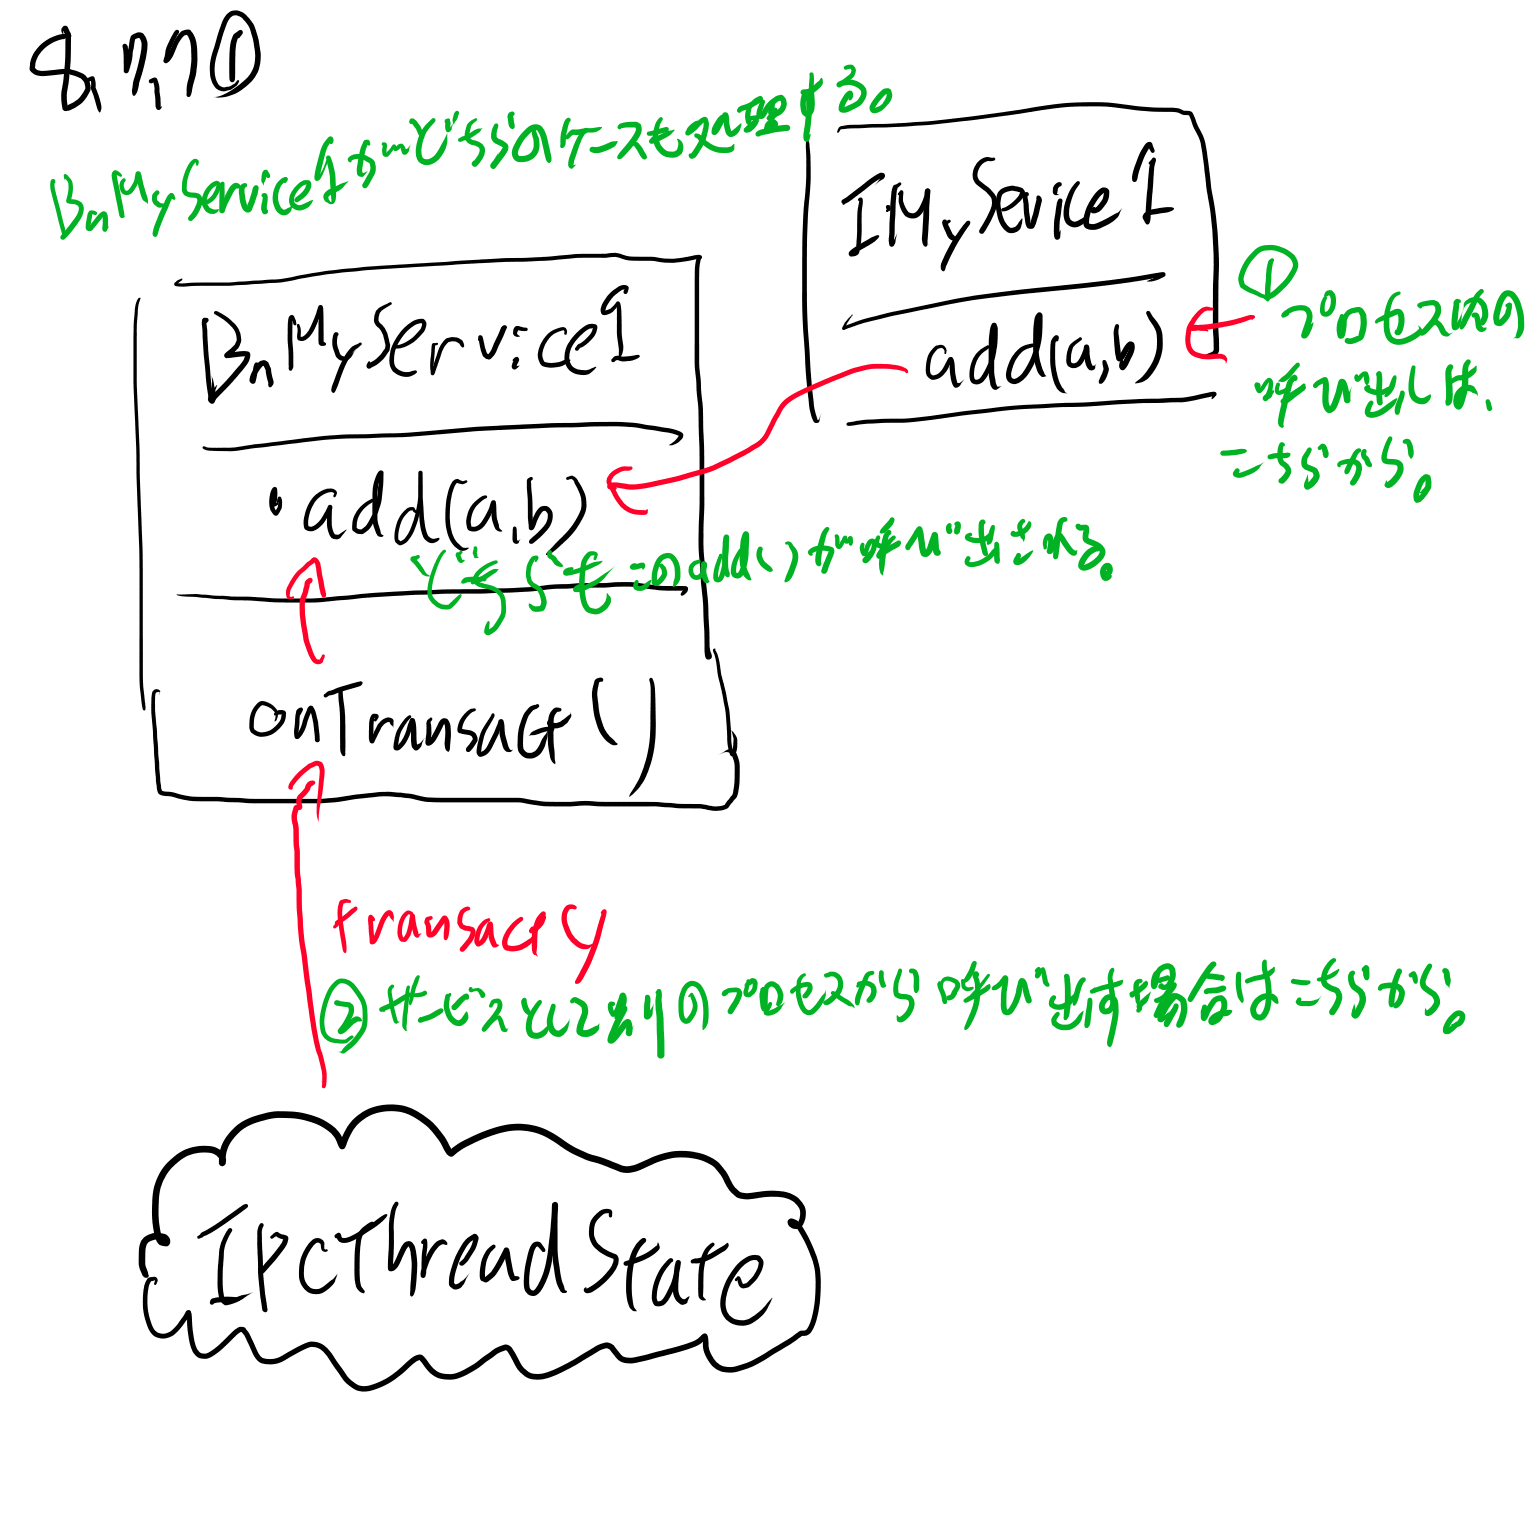 8.7.7①
BnMyService1がどちらのケースも処理する。
IMyService1
add(a,b)
①プロセス内の
呼び出しは、
こちらから。
BnMyService1
・add(a,b)
どちらもこのadd()が呼び出される。
onTransact()
transact
②サービスとは別のプロセスから呼び出す場合はこちらから。
IPCThreadState